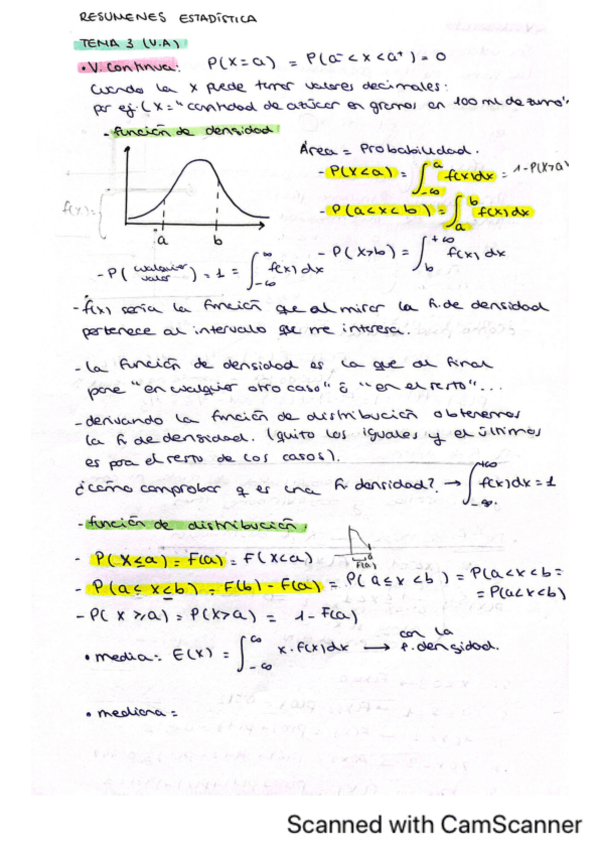 RESUMENES ESTADÍSTICA
TEMA 3 (V.A)
• V. Continua: P(X=a) = P(a⁻<x<a⁺) = 0
Cuando la x puede tener valores decimales:
por ej. (X = "cantidad de azúcar en gramos en 100 ml de zumo"
- función de densidad
Área = Probabilidad.
- P(X<a) = ∫_{-∞}^{a} f(x)dx = 1-P(X>a)
- P(a<x<b) = ∫_{a}^{b} f(x)dx
f(x)=
a b
- P(X>b) = ∫_{b}^{+∞} f(x)dx
- P(cualquier valor) = 1 = ∫_{-∞}^{∞} f(x)dx
- f(x) sería la función que al mirar la f. de densidad
pertenece al intervalo que me interesa.
- la función de densidad es la que al final
pone "en cualquier otro caso" ó "en el resto"...
- derivando la función de distribución obtenemos
la f. de densidad. (quito los iguales y el último
es para el resto de los casos).
¿cómo comprobar q es una f. densidad? → ∫_{-∞}^{+∞} f(x)dx = 1
- función de distribución:
a
F(a)
- P(X≤a) = F(a) = F(X<a)
- P(a≤x≤b) = F(b) - F(a) = P(a≤x<b) = P(a<x<b =
= P(a<x<b)
- P(X≥a) = P(X>a) = 1 - F(a)
• media: E(X) = ∫_{-∞}^{∞} x·f(x)dx → con la f. densidad.
• mediana =
Scanned with CamScanner